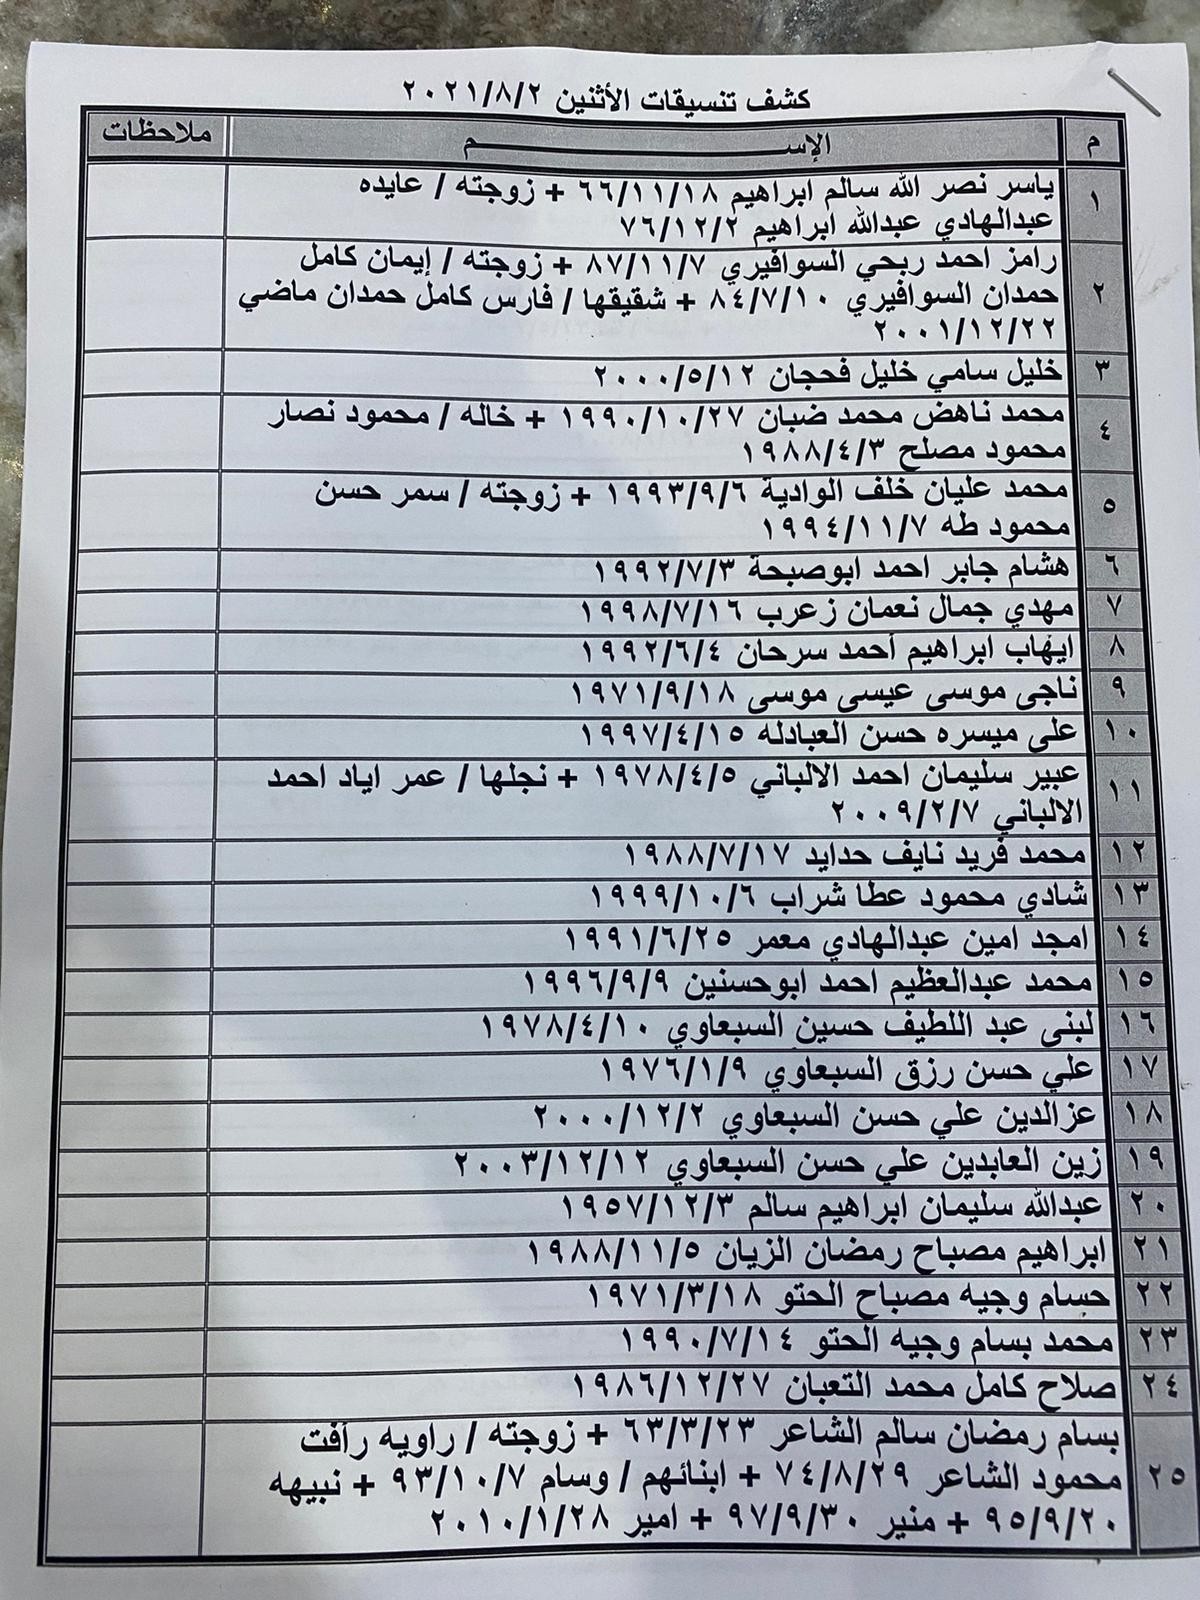 كشف تنسيقات الأثنين ٢٠٢١/٨/٢
م الإســــــــــــــــــــم ملاحظات
١ ياسر نصر الله سالم ابراهيم ٦٦/١١/١٨ + زوجته / عايده
عبدالهادي عبدالله ابراهيم ٧٦/١٢/٢
رامز احمد ربحي السوافيري ٨٧/١١/٧ + زوجته / إيمان كامل
٢ حمدان السوافيري ٨٤/٧/١٠ + شقيقها / فارس كامل حمدان ماضي
٢٠٠١/١٢/٢٢
٣ خليل سامي خليل فحجان ٢٠٠٠/٥/١٢
٤ محمد ناهض محمد ضبان ١٩٩٠/١٠/٢٧ + خاله / محمود نصار
محمود مصلح ١٩٨٨/٤/٣
٥ محمد عليان خلف الوادية ١٩٩٣/٩/٦ + زوجته / سمر حسن
محمود طه ١٩٩٤/١١/٧
٦ هشام جابر احمد ابوصبحة ١٩٩٢/٧/٣
٧ مهدي جمال نعمان زعرب ١٩٩٨/٧/١٦
٨ ايهاب ابراهيم أحمد سرحان ١٩٩٢/٦/٤
٩ ناجى موسى عيسى موسى ١٩٧١/٩/١٨
١٠ على ميسره حسن العبادله ١٩٩٧/٤/١٥
١١ عبير سليمان احمد الالباني ١٩٧٨/٤/٥ + نجلها / عمر اياد احمد
الالباني ٢٠٠٩/٢/٧
١٢ محمد فريد نايف حدايد ١٩٨٨/٧/١٧
١٣ شادي محمود عطا شراب ١٩٩٩/١٠/٦
١٤ امجد امين عبدالهادي معمر ١٩٩١/٦/٢٥
١٥ محمد عبدالعظيم احمد ابوحسنين ١٩٩٦/٩/٩
١٦ لبنى عبد اللطيف حسين السبعاوي ١٩٧٨/٤/١٠
١٧ علي حسن رزق السبعاوي ١٩٧٦/١/٩
١٨ عزالدين علي حسن السبعاوي ٢٠٠٠/١٢/٢
١٩ زين العابدين علي حسن السبعاوي ٢٠٠٣/١٢/١٢
٢٠ عبدالله سليمان ابراهيم سالم ١٩٥٧/١٢/٣
٢١ ابراهيم مصباح رمضان الزيان ١٩٨٨/١١/٥
٢٢ حسام وجيه مصباح الحتو ١٩٧١/٣/١٨
٢٣ محمد بسام وجيه الحتو ١٩٩٠/٧/١٤
٢٤ صلاح كامل محمد التعبان ١٩٨٦/١٢/٢٧
بسام رمضان سالم الشاعر ٦٣/٣/٢٣ + زوجته / راويه رأفت
٢٥ محمود الشاعر ٧٤/٨/٢٩ + ابنائهم / وسام ٩٣/١٠/٧ + نبيهه
٩٥/٩/٢٠ + منير ٩٧/٩/٣٠ + امير ٢٠١٠/١/٢٨